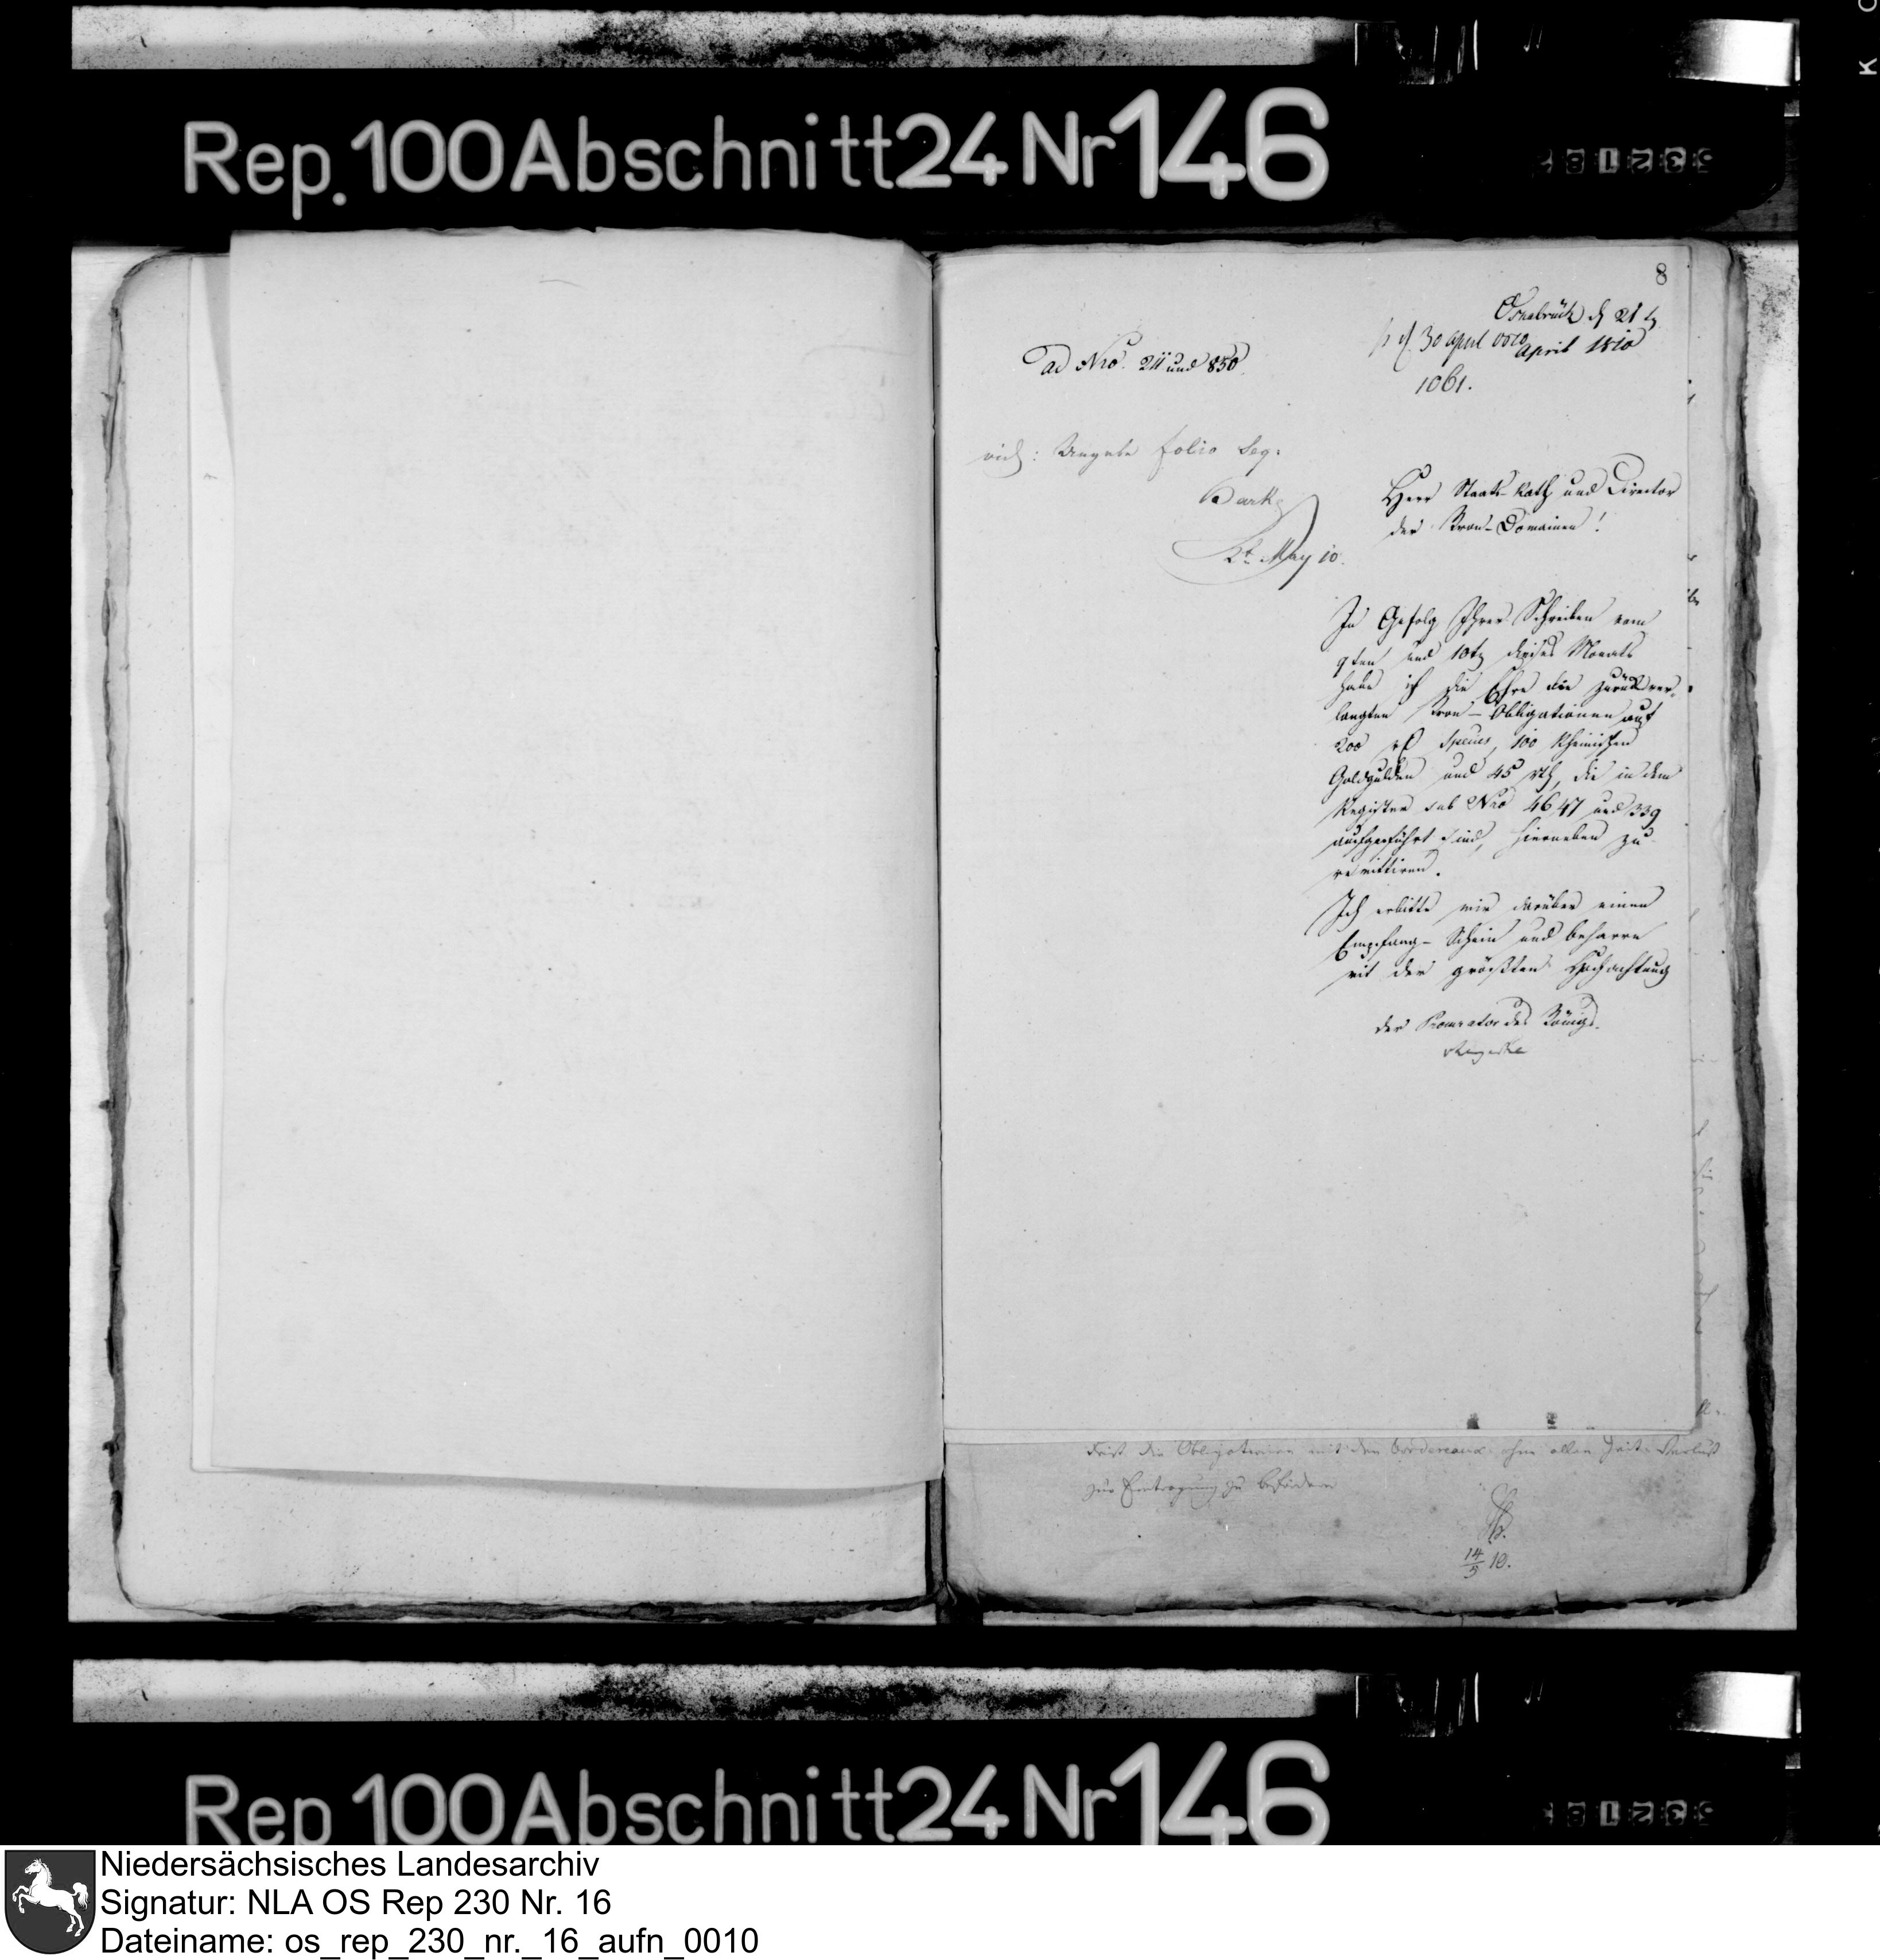 Rep. 100 Abschnitt 24 Nr 146
8
Osnabrück d 21t
April 1810
30 April 1810
1061.
ad Nro. 211 und 850
vid: folio seq.
2t May 10.
Herr Staats-Rath und Director
der Kron-Domainen!
In Gefolg Ihrer Schreiben vom
9ten und 10t dieses Monats
habe ich die Ehre die zurückver-
langten Kron-Obligationen auf
200 rt Species, 100 Rheinischen
Goldgulden und 45 rth, die in dem
Register sub Nro 46, 47 und 339
aufgeführt sind, hierneben zu
remittiren.
Ich erbitte mir darüber einen
Empfang-Schein und beharre
mit der größten Hochachtung
der Procurator des Königs.
die Obligationen mit den Bordereaux ohne allen Zeit-Verlust
zur Eintragung zu befördern
14/5 10.
Rep 100 Abschnitt 24 Nr 146
Niedersächsisches Landesarchiv
Signatur: NLA OS Rep 230 Nr. 16
Dateiname: os_rep_230_nr._16_aufn_0010